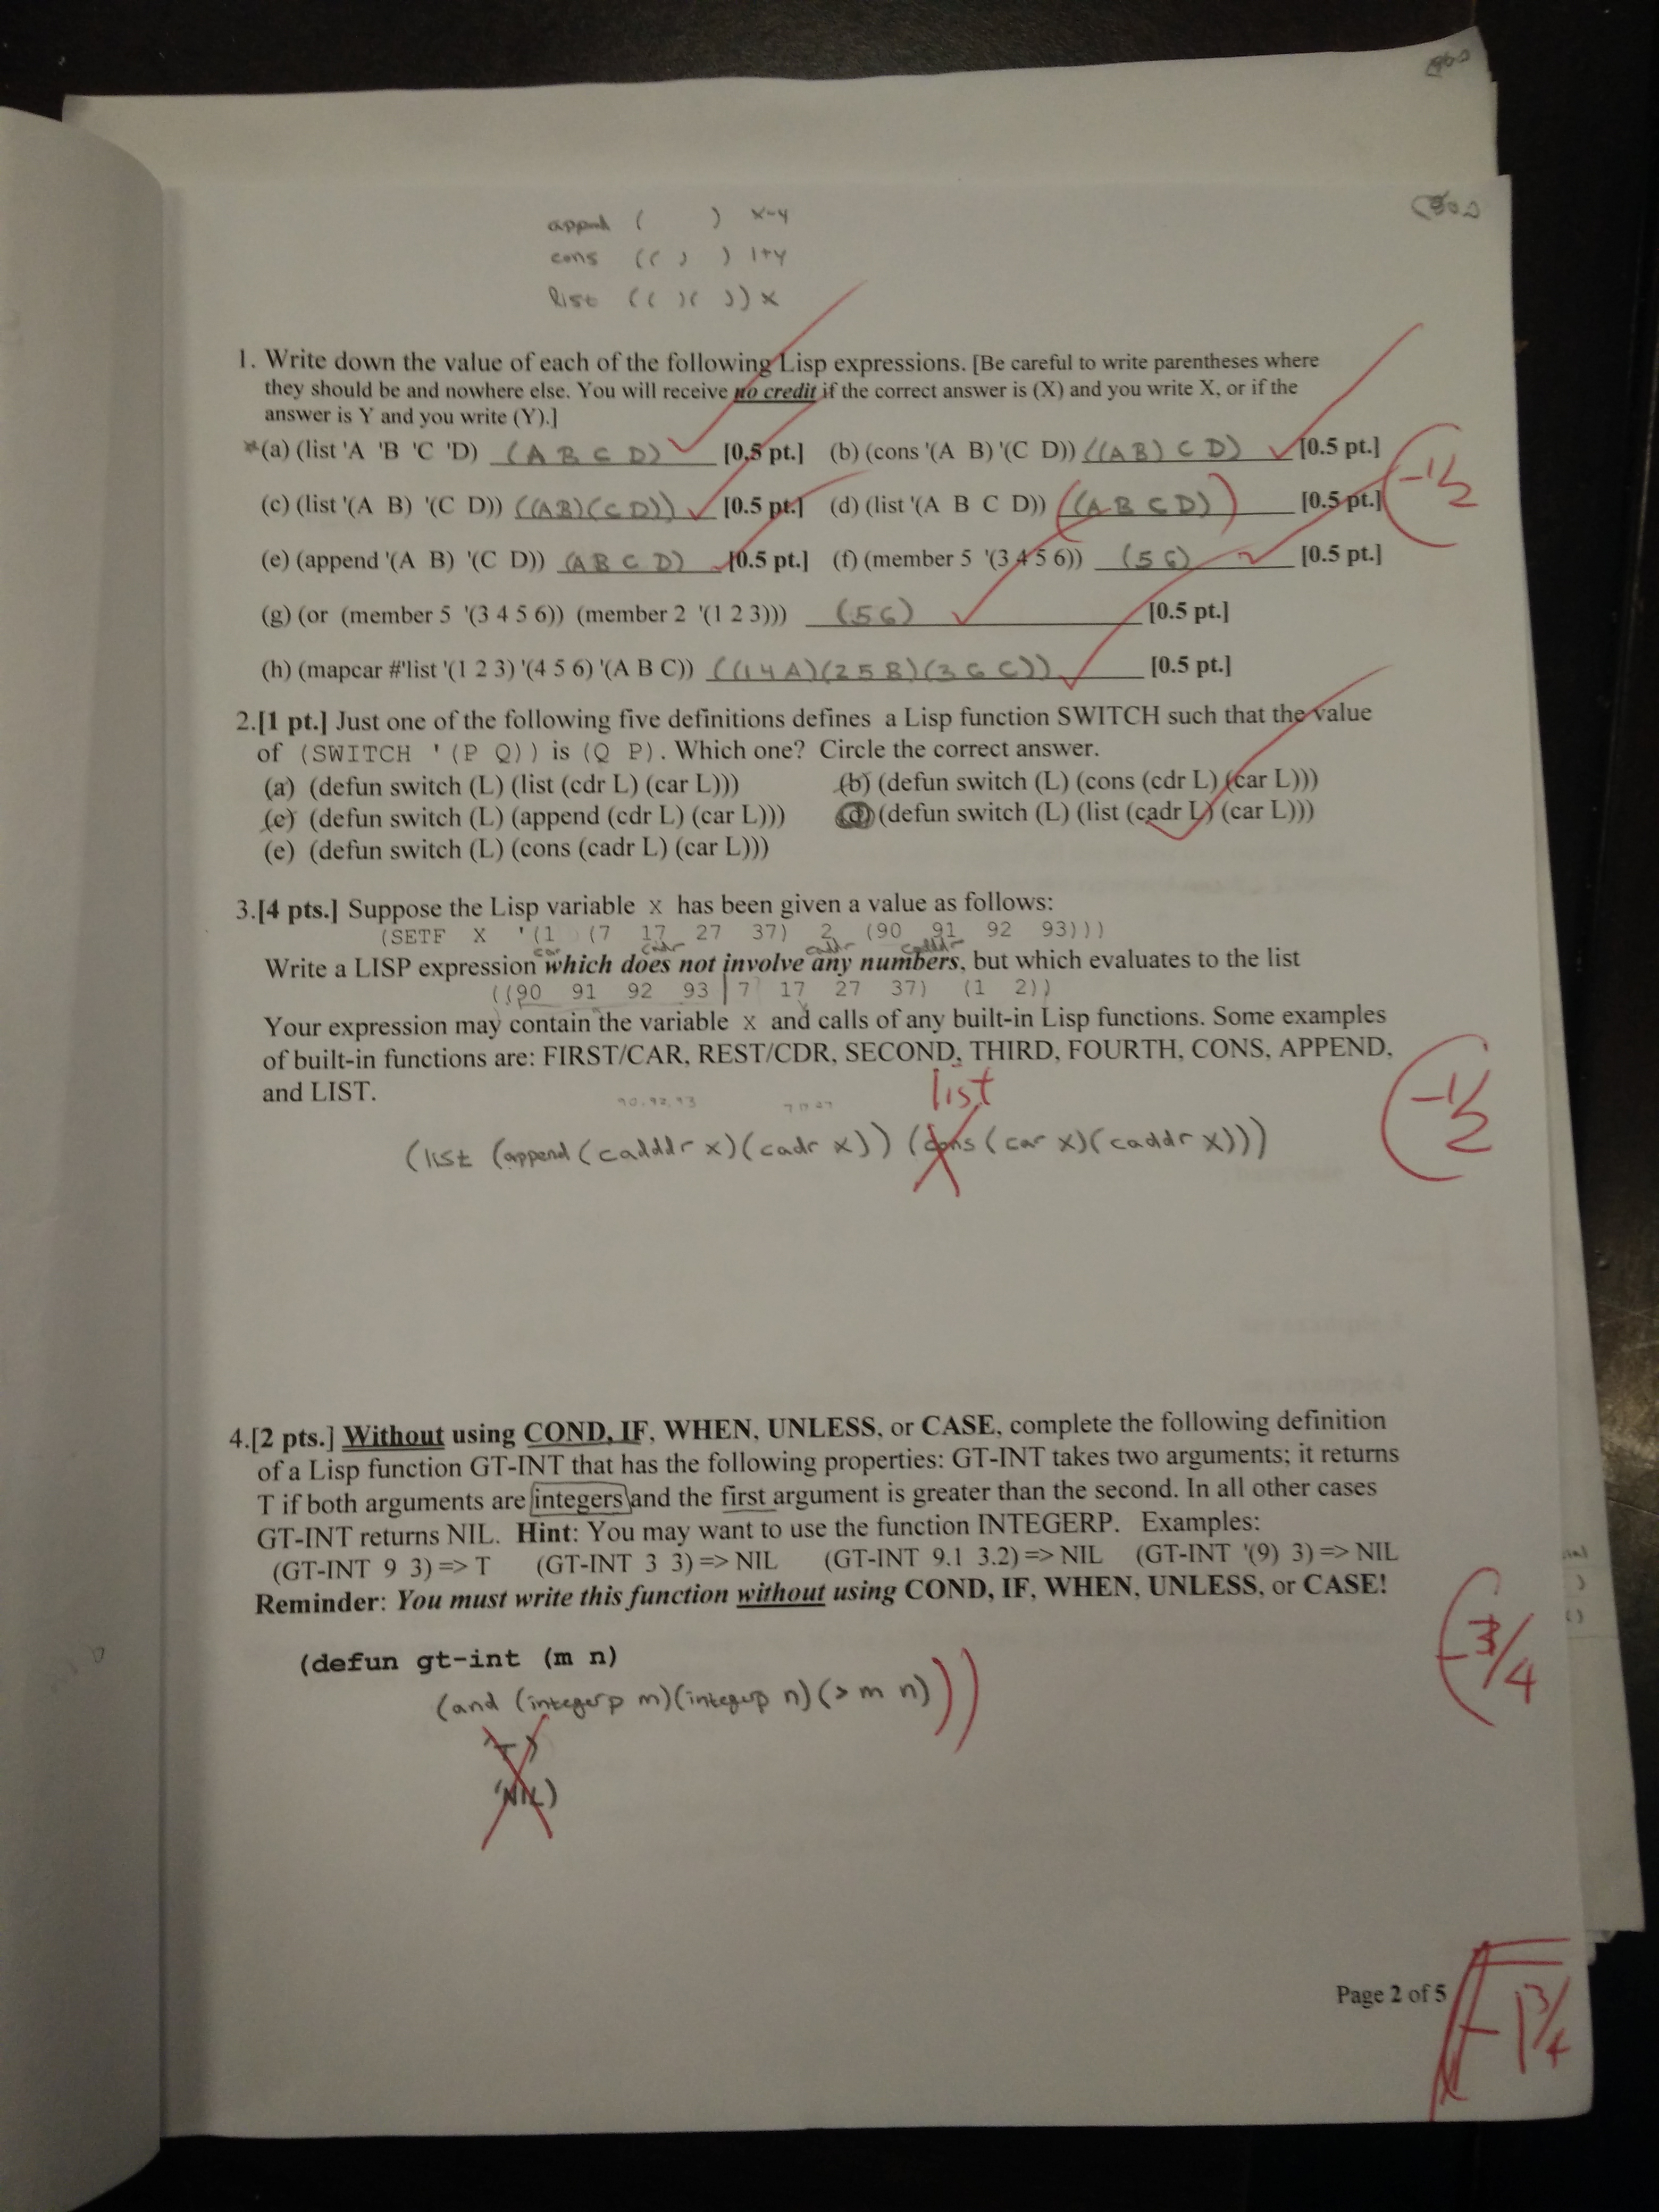 append ( ) x-y
cons (( ) ) 1+y
list (( )( )) x
1. Write down the value of each of the following Lisp expressions. [Be careful to write parentheses where
they should be and nowhere else. You will receive no credit if the correct answer is (X) and you write X, or if the
answer is Y and you write (Y).]
*(a) (list 'A 'B 'C 'D) (A B C D) [0.5 pt.] (b) (cons '(A B) '(C D)) ((A B) C D) [0.5 pt.]
-1/2
(c) (list '(A B) '(C D)) ((AB)(C D)) [0.5 pt.] (d) (list '(A B C D)) ((A B C D)) [0.5 pt.]
(e) (append '(A B) '(C D)) (A B C D) [0.5 pt.] (f) (member 5 '(3 4 5 6)) (5 6) [0.5 pt.]
(g) (or (member 5 '(3 4 5 6)) (member 2 '(1 2 3))) (5 6) [0.5 pt.]
(h) (mapcar #'list '(1 2 3) '(4 5 6) '(A B C)) ((1 4 A)(2 5 B)(3 6 C)) [0.5 pt.]
2.[1 pt.] Just one of the following five definitions defines a Lisp function SWITCH such that the value
of (SWITCH '(P Q)) is (Q P). Which one? Circle the correct answer.
(a) (defun switch (L) (list (cdr L) (car L))) (b) (defun switch (L) (cons (cdr L) (car L)))
(c) (defun switch (L) (append (cdr L) (car L))) (d) (defun switch (L) (list (cadr L) (car L)))
(e) (defun switch (L) (cons (cadr L) (car L)))
3.[4 pts.] Suppose the Lisp variable x has been given a value as follows:
(SETF X '(1 (7 17 27 37) 2 (90 91 92 93)))
car cadr caddr cadddr
Write a LISP expression which does not involve any numbers, but which evaluates to the list
((90 91 92 93 | 7 17 27 37) (1 2))
Your expression may contain the variable x and calls of any built-in Lisp functions. Some examples
of built-in functions are: FIRST/CAR, REST/CDR, SECOND, THIRD, FOURTH, CONS, APPEND,
and LIST.
list
-1/2
(list (append (cadddr x)(cadr x)) (cons (car x)(caddr x)))
4.[2 pts.] Without using COND, IF, WHEN, UNLESS, or CASE, complete the following definition
of a Lisp function GT-INT that has the following properties: GT-INT takes two arguments; it returns
T if both arguments are integers and the first argument is greater than the second. In all other cases
GT-INT returns NIL. Hint: You may want to use the function INTEGERP. Examples:
(GT-INT 9 3) => T (GT-INT 3 3) => NIL (GT-INT 9.1 3.2) => NIL (GT-INT '(9) 3) => NIL
Reminder: You must write this function without using COND, IF, WHEN, UNLESS, or CASE!
-3/4
(defun gt-int (m n)
(and (integerp m)(integerp n)(> m n)))
'NIL)
Page 2 of 5
-1 3/4